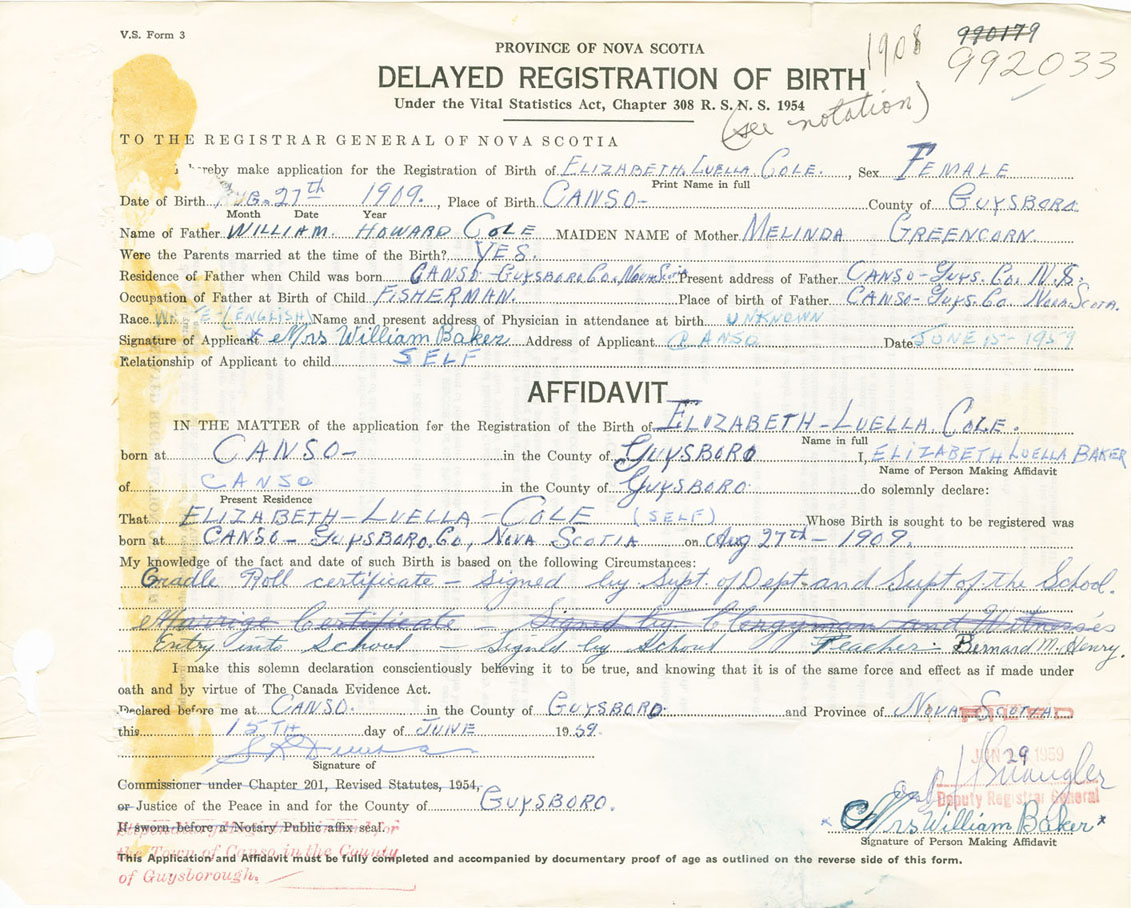 V.S. Form 3
PROVINCE OF NOVA SCOTIA
1908
990179
992033
DELAYED REGISTRATION OF BIRTH
Under the Vital Statistics Act, Chapter 308 R. S. N. S. 1954
(see notation)
TO THE REGISTRAR GENERAL OF NOVA SCOTIA
hereby make application for the Registration of Birth of ELIZABETH LUELLA COLE., Sex FEMALE
Print Name in full
Date of Birth AUG. 27th 1909., Place of Birth CANSO- County of GUYSBORO
Month Date Year
Name of Father WILLIAM HOWARD COLE MAIDEN NAME of Mother MELINDA GREENCORN
Were the Parents married at the time of the Birth? YES.
Residence of Father when Child was born CANSO-GUYSBORO Co. NOVA SCOTIA Present address of Father CANSO-GUYS. Co. N.S.
Occupation of Father at Birth of Child FISHERMAN. Place of birth of Father CANSO-GUYS. Co NOVA SCOTA.
Race WHITE-(ENGLISH) Name and present address of Physician in attendance at birth UNKNOWN
Signature of Applicant x Mrs William Baker Address of Applicant CANSO Date JUNE 15-1959
Relationship of Applicant to child SELF
AFFIDAVIT
IN THE MATTER of the application for the Registration of the Birth of ELIZABETH-LUELLA COLE.
Name in full
born at CANSO- in the County of GUYSBORO I, ELIZABETH LUELLA BAKER
Name of Person Making Affidavit
of CANSO in the County of GUYSBORO do solemnly declare:
Present Residence
That ELIZABETH-LUELLA-COLE (SELF) Whose Birth is sought to be registered was
born at CANSO-GUYSBORO Co, NOVA SCOTIA on Aug 27th-1909.
My knowledge of the fact and date of such Birth is based on the following Circumstances:
Cradle Roll certificate - signed by Supt. of Dept. and Supt of the School.
Marrige Certificate - Signed by Clergyman and Witnesses
Entry into School - Signed by School Teacher: Bernard M. Henry.
I make this solemn declaration conscientiously believing it to be true, and knowing that it is of the same force and effect as if made under
oath and by virtue of The Canada Evidence Act.
Declared before me at CANSO. in the County of GUYSBORO and Province of NOVA SCOTIA
this 15TH day of JUNE 1959.
Signature of
JUN 29 1959
Commissioner under Chapter 201, Revised Statutes, 1954,
or Justice of the Peace in and for the County of GUYSBORO.
Deputy Registrar General
If sworn before a Notary Public affix seal.
x Mrs William Baker x
Signature of Person Making Affidavit
the Town of Canso in the County
This Application and Affidavit must be fully completed and accompanied by documentary proof of age as outlined on the reverse side of this form.
of Guysborough.